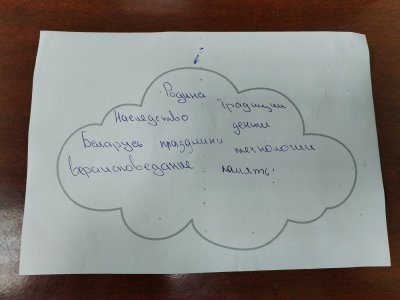 Родина
Традиции
Наследство
деньги
Беларусь праздники
технологии
вераисповедание
память